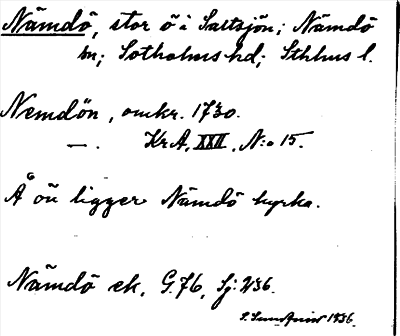 Nämdö, stor ö i Saltsjön; Nämdö
sn; Sotholms hd; Sthlms l.
Nemdön, omkr. 1730.
—. KrA, XXII, N:o 15.
Å ön ligger Nämdö kyrka.
Nämdö ek. G. 76, Sj: 236.
1936.